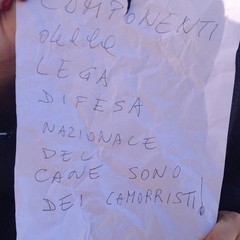 COMPONENTI
della
LEGA
DIFESA
NAZIONALE
DEL
CANE SONO
DEI CAMORRISTI!